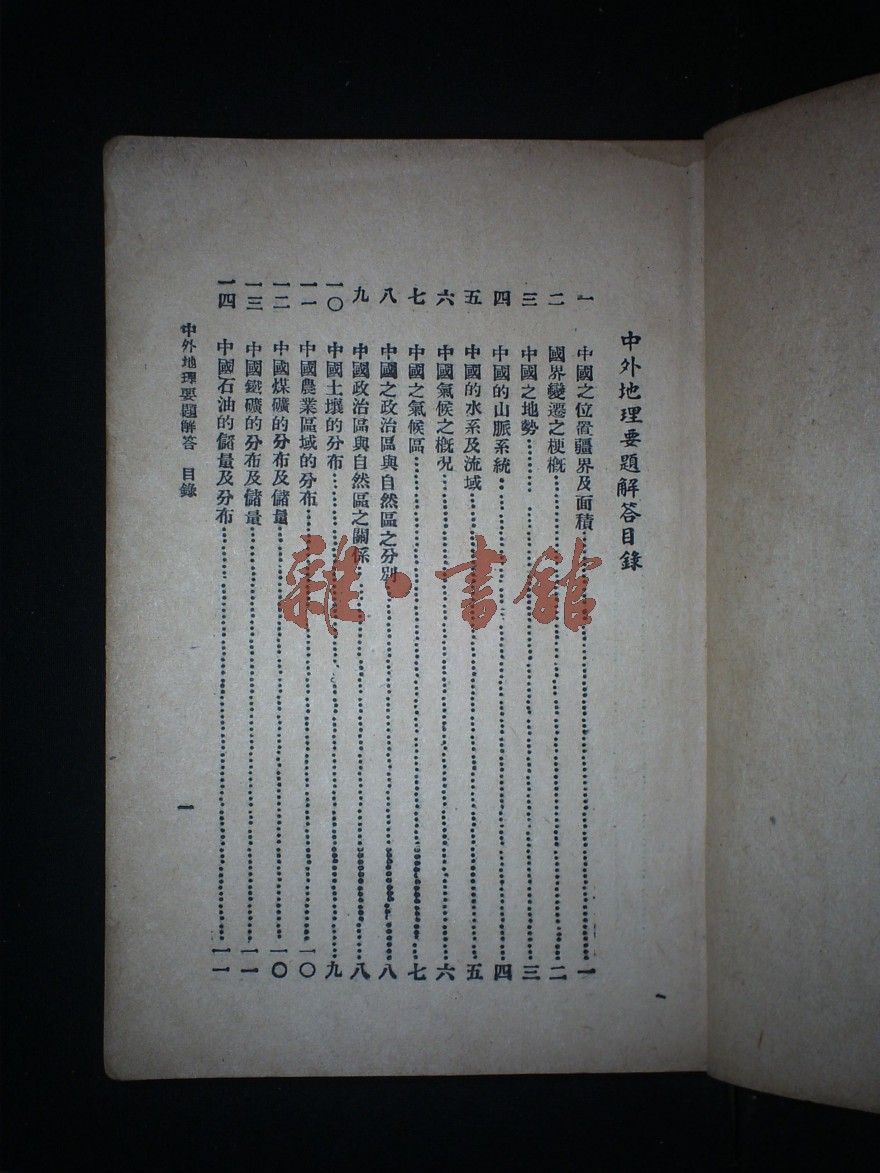 中外地理要題解答目錄
一 中國之位置疆界及面積……一
二 國界變遷之梗概……二
三 中國之地勢……三
四 中國的山脈系統……四
五 中國的水系及流域……五
六 中國氣候之概況……六
七 中國之氣候區……七
八 中國之政治區與自然區之分別……八
九 中國政治區與自然區之關係……八
一〇 中國土壤的分布……九
一一 中國農業區域的分布……一〇
一二 中國煤礦的分布及儲量……一〇
一三 中國鐵礦的分布及儲量……一一
一四 中國石油的儲量及分布……一一
中外地理要題解答 目錄
一
雜·書館